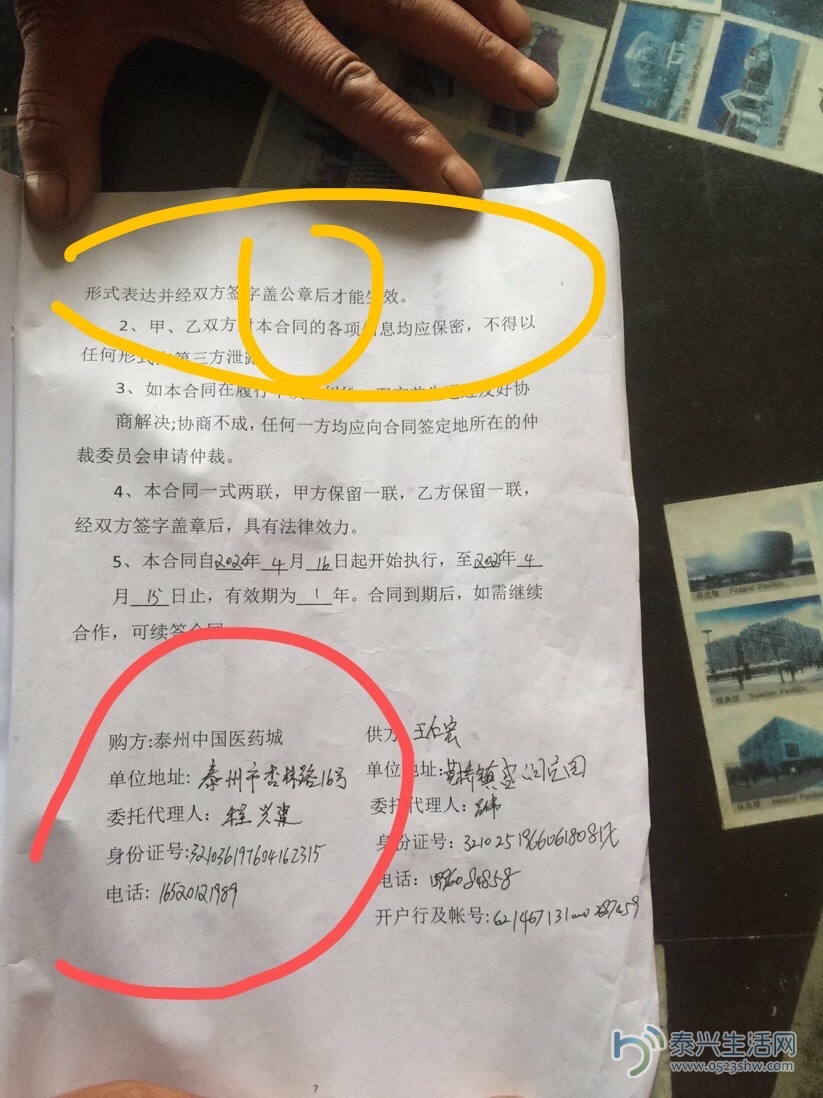 形式表达并经双方签字盖公章后才能生效。
2、甲、乙双方对本合同的各项信息均应保密，不得以
任何形式向第三方泄露
3、如本合同在履行
商解决;协商不成，任何一方均应向合同签定地所在的仲
裁委员会申请仲裁。
4、本合同一式两联，甲方保留一联，乙方保留一联，
经双方签字盖章后，具有法律效力。
5、本合同自2020年 4 月 16 日起开始执行，至 年 4
月 15 日止，有效期为 1 年。合同到期后，如需继续
合作，可续签合同
购方:泰州中国医药城
单位地址: 泰州市杏林路16号
委托代理人:
身份证号:321036197604162315
电话: 16520121989
供方
单位地址:
委托代理人:
身份证号:
电话:
开户行及帐号:
7
Finland Pavilion
Sweden Pavilion
Iceland Pavilion
泰兴生活网
www.0523shw.com